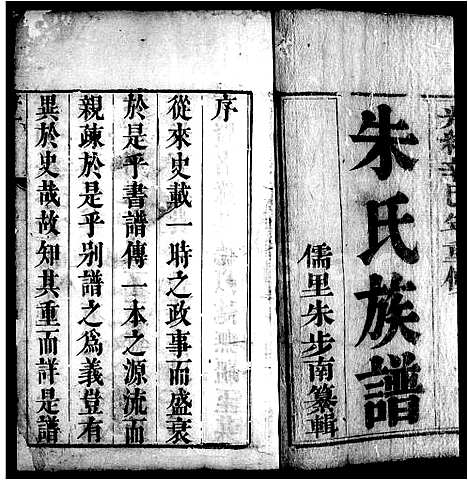 朱氏族譜
儒里朱步南纂輯
序
從來史載一時之政事而盛衰
於是乎書譜傳一本之源流而
親疎於是乎別譜之為義豈有
異於史哉故知其重而詳是譜